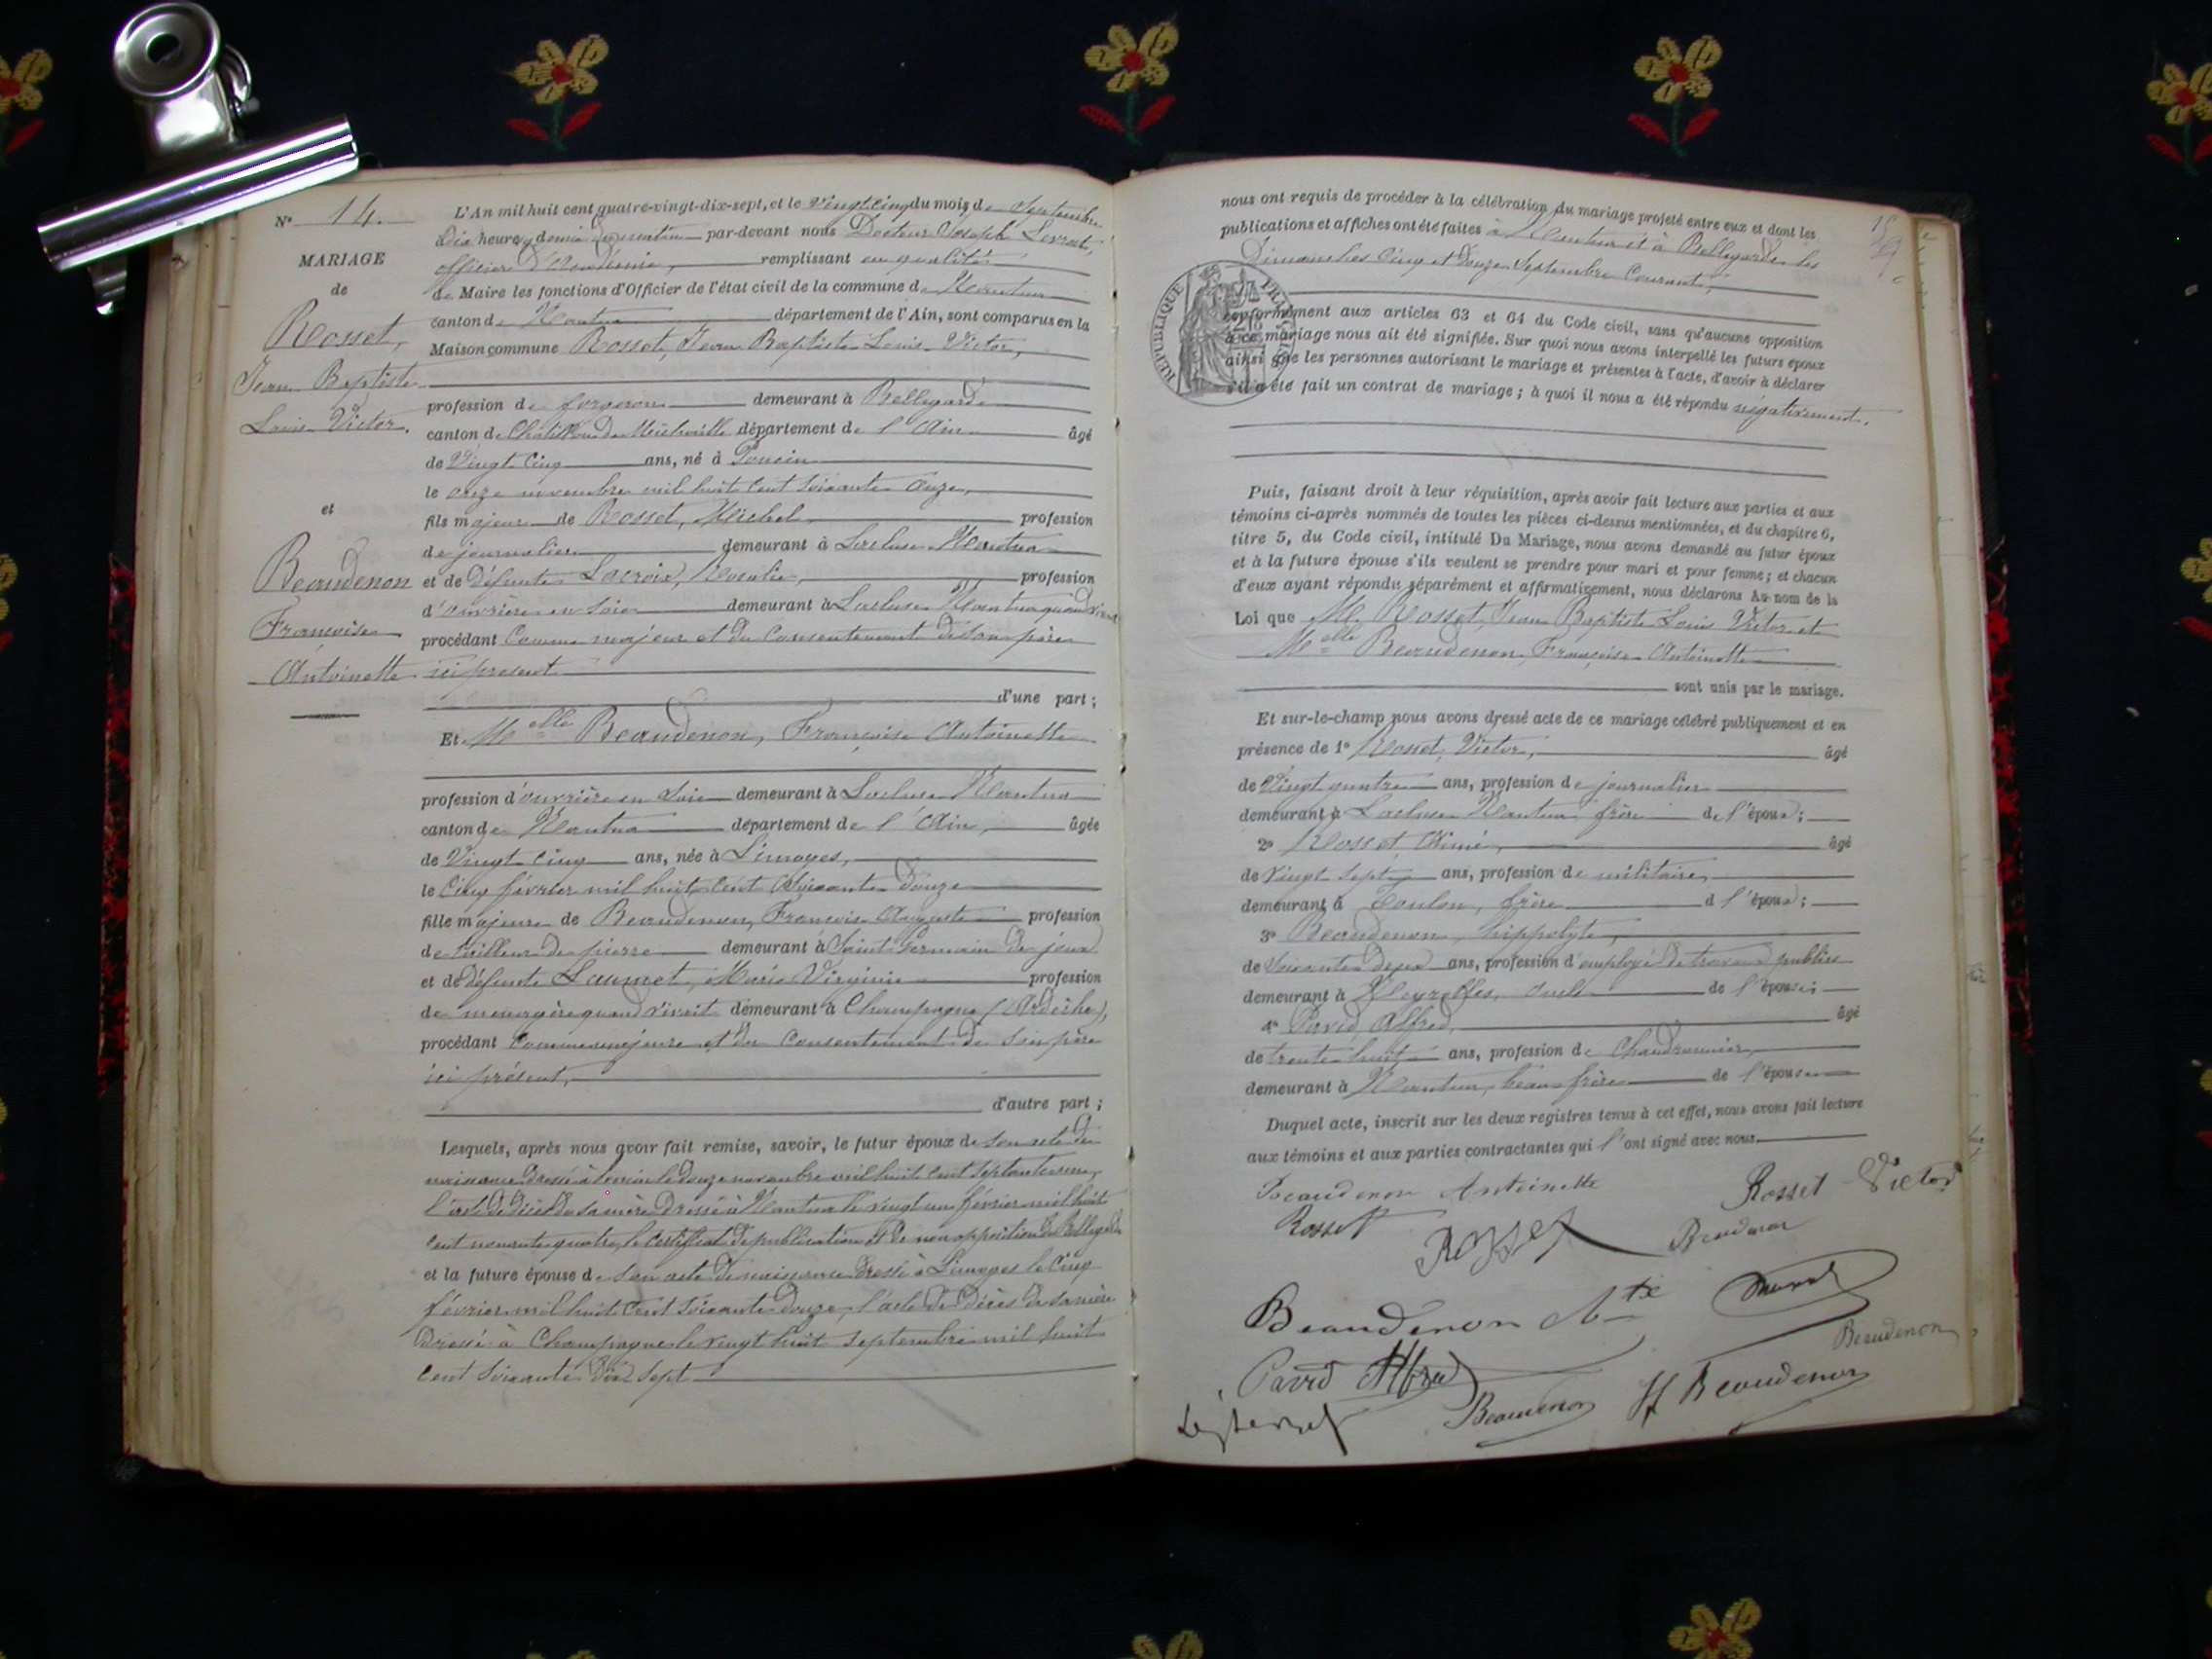 N° 14.
MARIAGE
de
Rosset,
Jean Baptiste
Louis Victor.
et
Beaudenon
Françoise
Antoinette
L'An mil huit cent quatre-vingt-dix-sept, et le Vingt cinq du mois de Septembre
Dix heures demie du matin par-devant nous Docteur Joseph
officier d'Académie, remplissant en qualité
de Maire les fonctions d'Officier de l'état civil de la commune de Nantua
canton de Nantua département de l'Ain, sont comparus en la
Maison commune Rosset, Jean Baptiste Louis Victor,
profession de forgeron demeurant à Bellegarde
canton de Châtillon de Michaille département de l'Ain âgé
de Vingt cinq ans, né à Poncin
le onze novembre mil huit cent soixante onze,
fils majeur de Rosset, Michel profession
de journalier demeurant à Lacluse Nantua
et de défunte Lacroix, Rosalie, profession
d'ouvrière en soie demeurant à Lacluse Nantua quand vivait
procédant comme majeur et du consentement de son père
ici présent
d'une part ;
Et Melle Beaudenon, Françoise Antoinette
profession d'ouvrière en soie demeurant à Lacluse Nantua
canton de Nantua département de l'Ain, âgée
de Vingt cinq ans, née à Limoges,
le cinq février mil huit cent soixante douze
fille majeure de Beaudenon, François Auguste profession
de tailleur de pierre demeurant à Saint Germain de joux
et de défunte Laumet, Marie Virginie profession
de ménagère quand vivait demeurant à Champagne (Ardèche),
procédant comme majeure et du consentement de son père
ici présent,
d'autre part ;
Lesquels, après nous avoir fait remise, savoir, le futur époux de son acte de
naissance dressé à Poncin le douze novembre mil huit cent septante un,
l'acte de décès de sa mère dressé à Nantua le vingt un février mil huit
cent nonante quatre, le certificat de publication et de non opposition de Bellegarde
et la future épouse de son acte de naissance dressé à Limoges le cinq
février mil huit cent soixante douze, l'acte de décès de sa mère
dressé à Champagne le vingt huit septembre mil huit
cent soixante dix sept
nous ont requis de procéder à la célébration du mariage projeté entre eux et dont les
publications et affiches ont été faites à Nantua et à Bellegarde les
Dimanches cinq et douze Septembre courant,
RÉPUBLIQUE FRANÇAISE
conformément aux articles 63 et 64 du Code civil, sans qu'aucune opposition
à ce mariage nous ait été signifiée. Sur quoi nous avons interpellé les futurs époux
ainsi que les personnes autorisant le mariage et présentes à l'acte, d'avoir à déclarer
s'il a été fait un contrat de mariage ; à quoi il nous a été répondu négativement.
Puis, faisant droit à leur réquisition, après avoir fait lecture aux parties et aux
témoins ci-après nommés de toutes les pièces ci-dessus mentionnées, et du chapitre 6,
titre 5, du Code civil, intitulé Du Mariage, nous avons demandé au futur époux
et à la future épouse s'ils veulent se prendre pour mari et pour femme ; et chacun
d'eux ayant répondu séparément et affirmativement, nous déclarons Au nom de la
Loi que M. Rosset, Jean Baptiste Louis Victor et
Melle Beaudenon, Françoise Antoinette
sont unis par le mariage.
Et sur-le-champ nous avons dressé acte de ce mariage célébré publiquement et en
présence de 1° Rosset, Victor, âgé
de Vingt quatre ans, profession de journalier
demeurant à Lacluse Nantua frère de l'époux ;
2° Rosset Aimé, âgé
de Vingt sept ans, profession de militaire,
demeurant à Toulon, frère d l'époux ;
3° Beaudenon, hippolyte,
de Soixante deux ans, profession d'employé de travaux publics
demeurant à Neyrolles, oncle de l'épouse ;
4° David Alfred, âgé
de trente huit ans, profession de Chaudronnier,
demeurant à Nantua, beau frère de l'épouse
Duquel acte, inscrit sur les deux registres tenus à cet effet, nous avons fait lecture
aux témoins et aux parties contractantes qui l'ont signé avec nous.
Beaudenon Antoinette
Rosset Victor
Rosset
Rosset
Beaudenon
Beaudenon
David Alfred
Beaudenon
Beaudenon
H Beaudenon